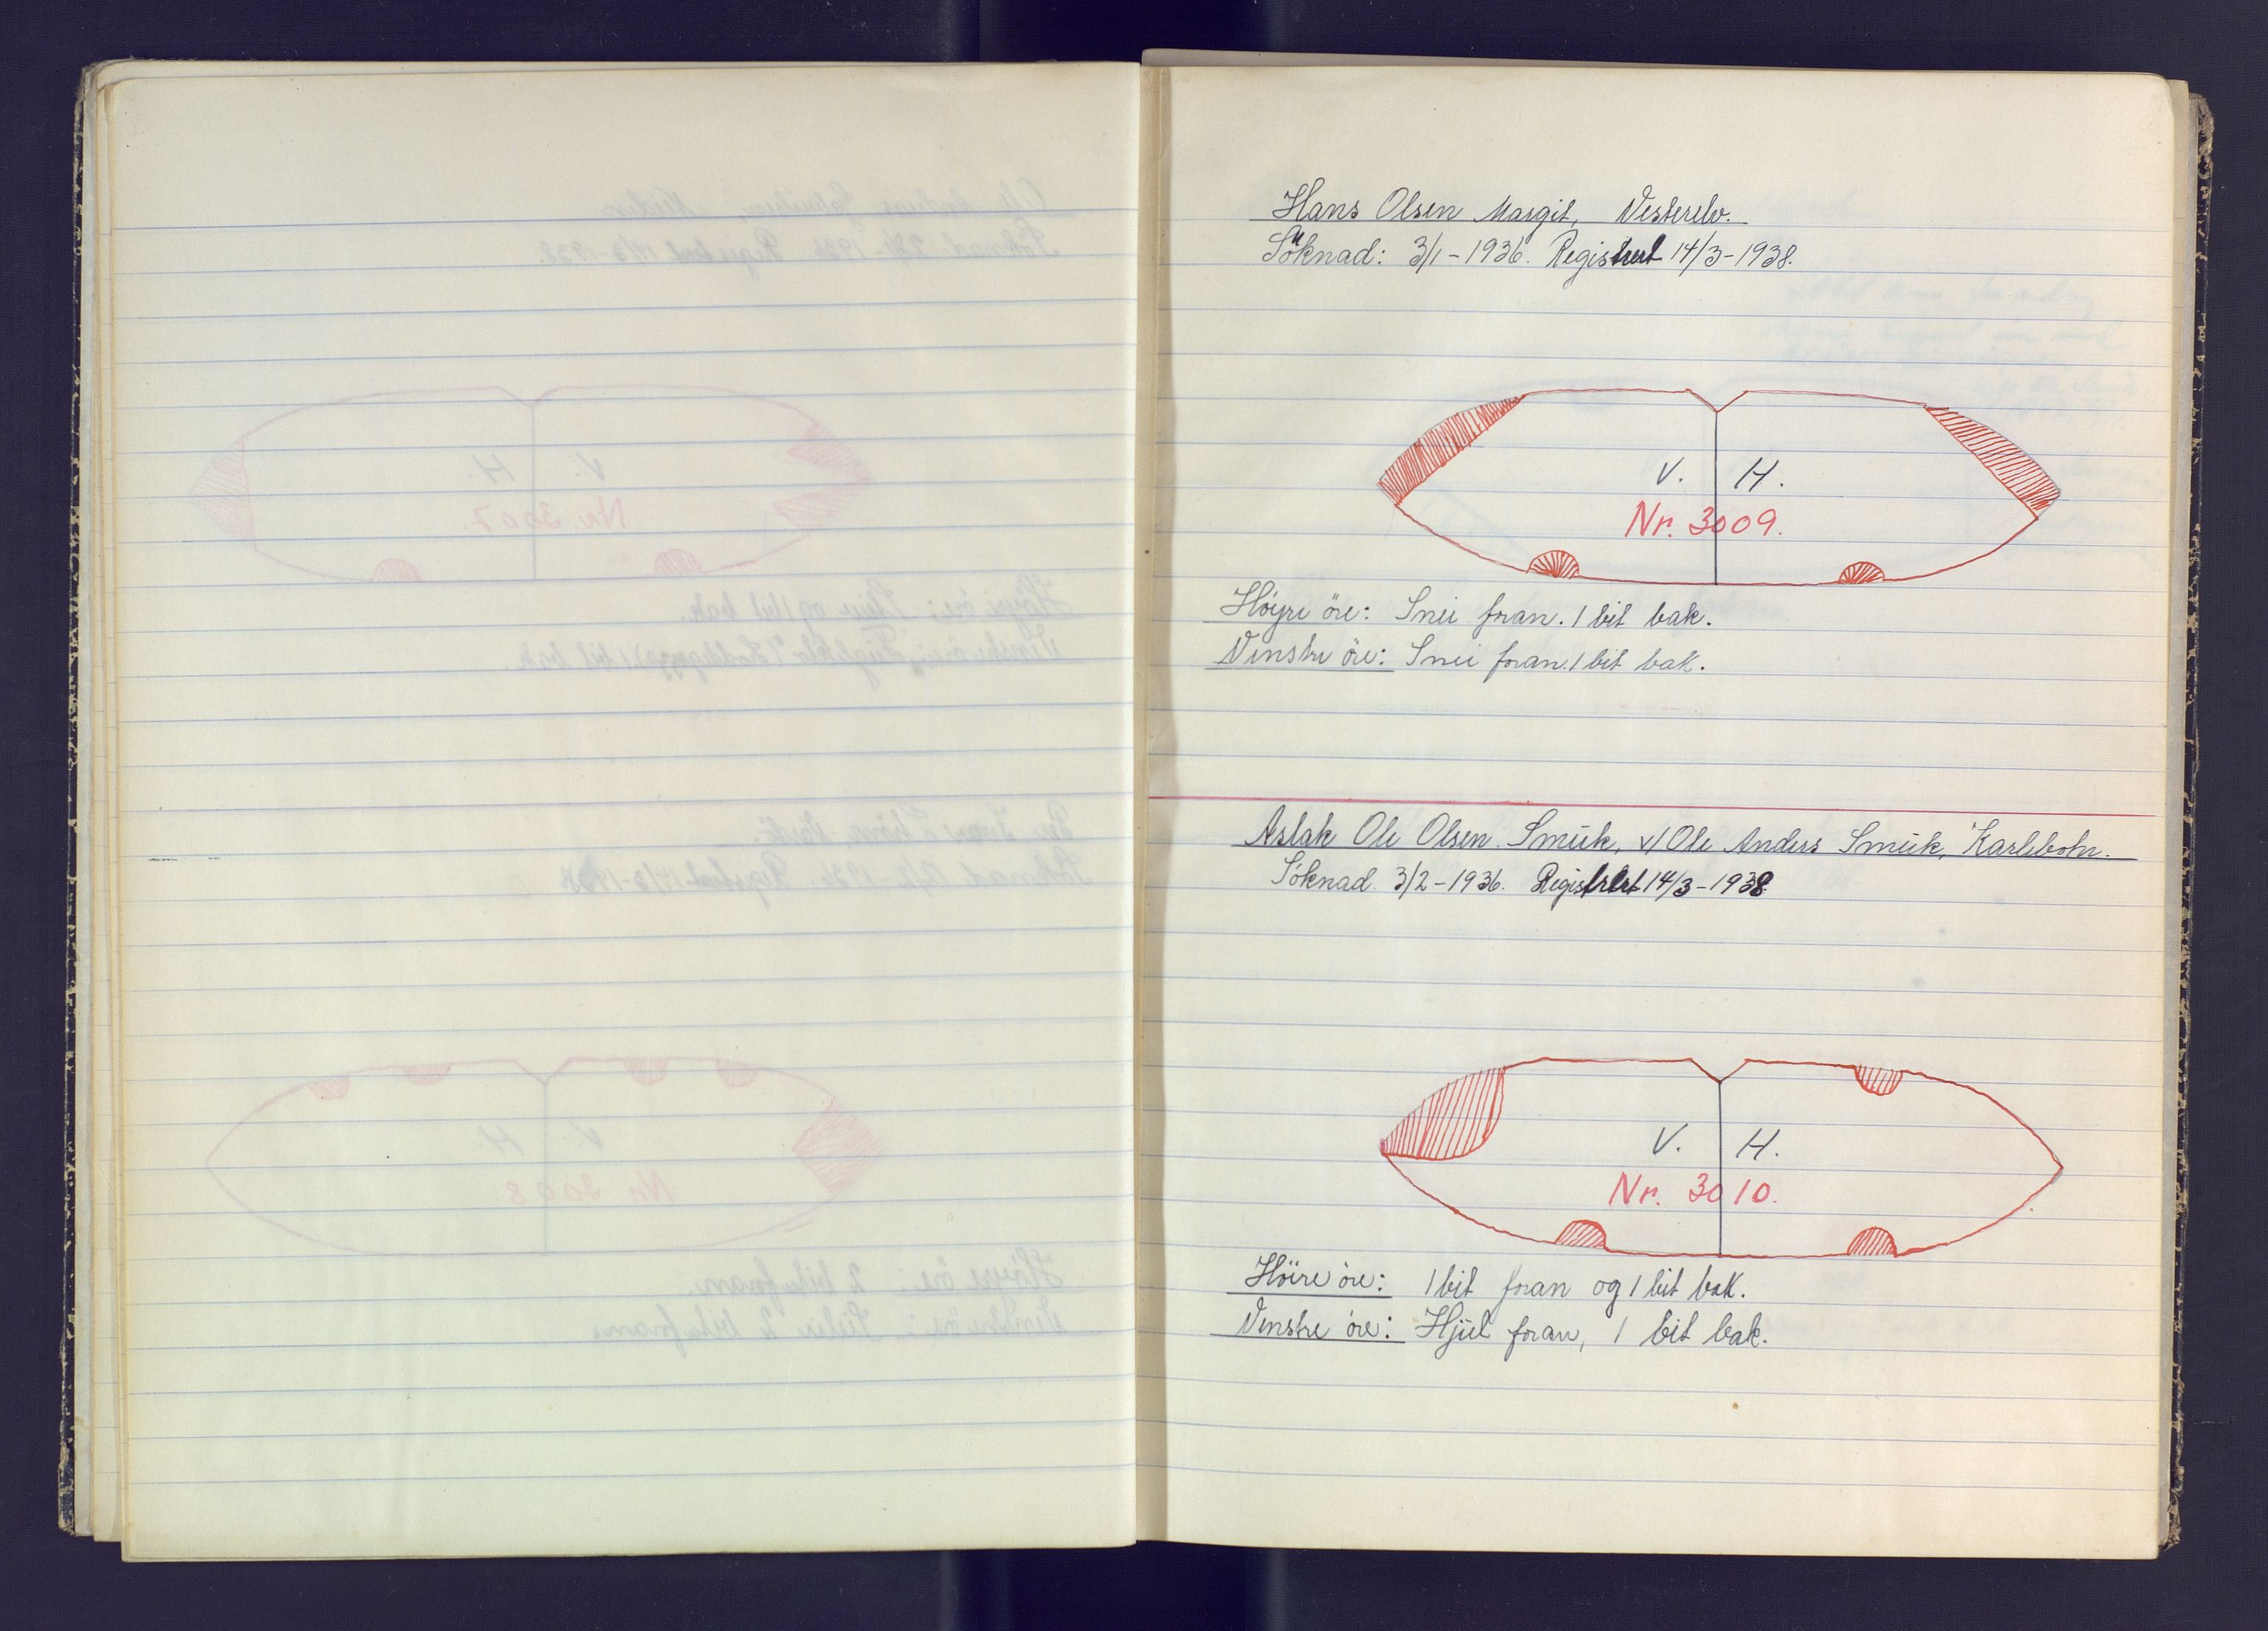 Hans Olsen Margit, Vesterelv.
Söknad: 3/1-1936. Registrert 14/3-1938.
V. H.
Nr. 3009.
Höyre öre: Snei foran. 1 bit bak.
Venstre öre: Snei foran. 1 bit bak.
Aslak Ole Olsen Smuk, v/ Ole Anders Smuk, Karlebotn.
Söknad 3/2-1936. Registrert 14/3-1938
V. H.
Nr. 3010.
Höire öre: 1 bit foran og 1 bit bak.
Venstre öre: Hjul foran, 1 bit bak.